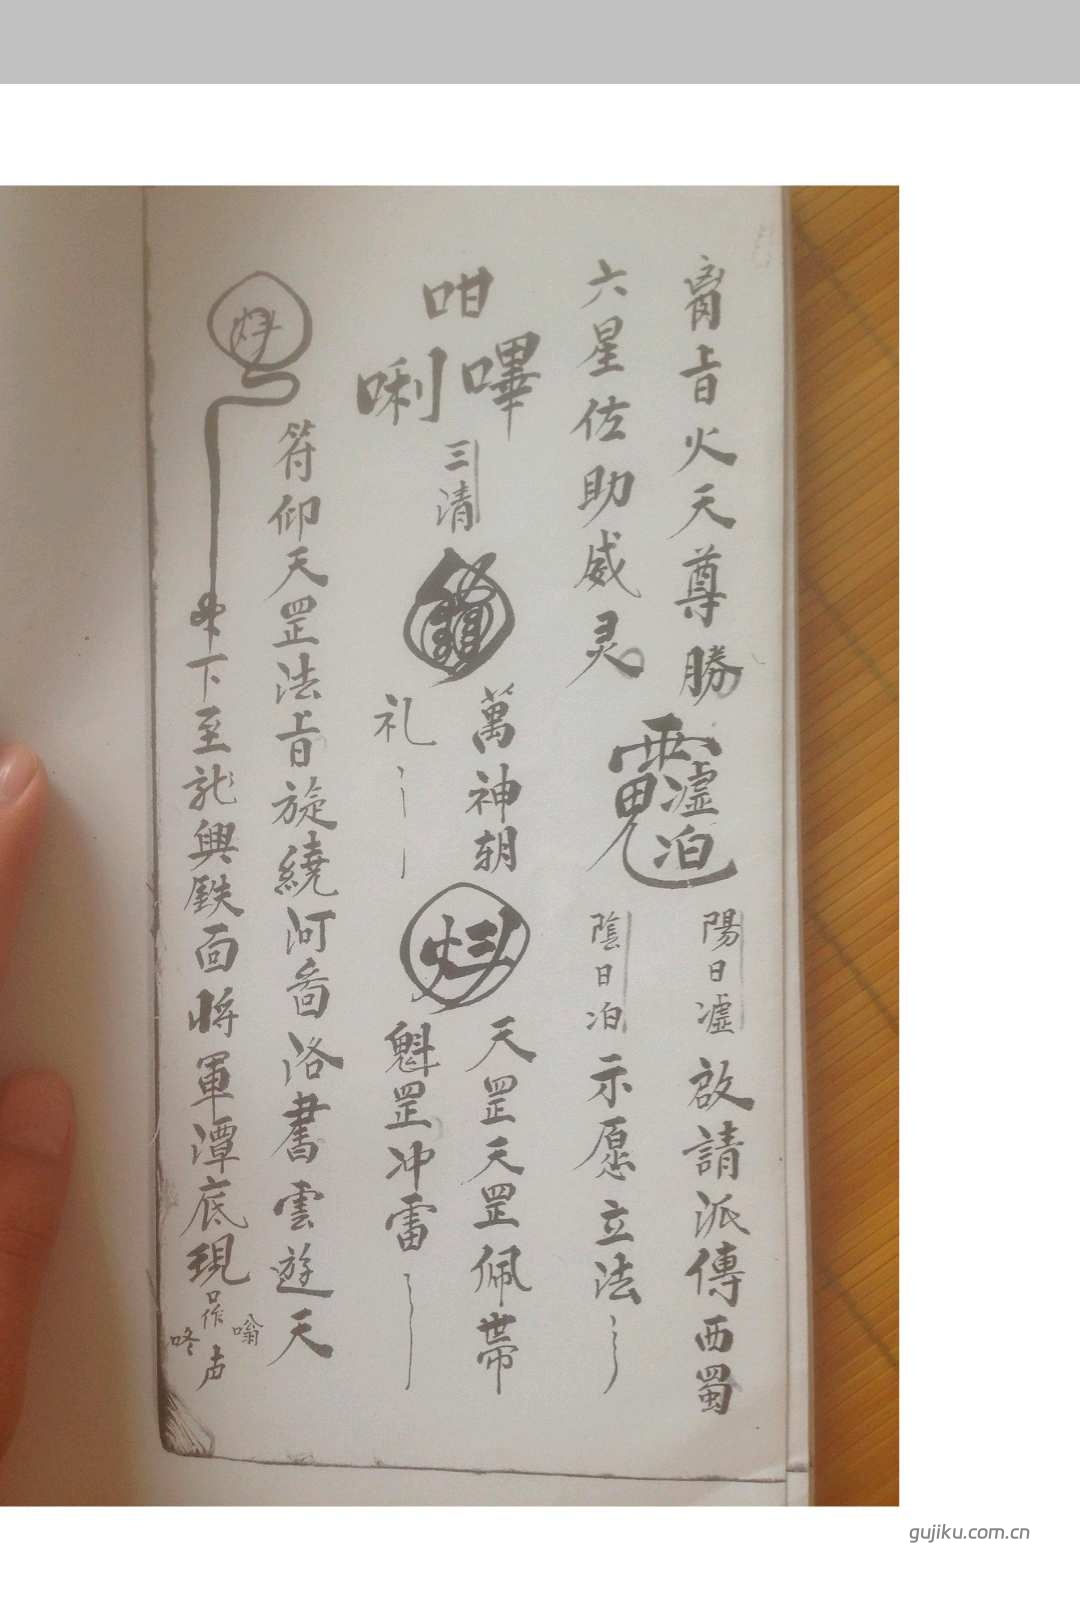 上旨火天尊勝
六星佐助威灵
陽日㵗 啟請派傳西蜀
陰日泊 示愿立法
呫
嗶
唎
三清
萬神朝
礼
天罡天罡佩帶
魁罡冲雷
符仰天罡法旨旋繞河啚洛書雲遊天
下至龙興鉄面將軍潭底現
嗡
咚
声
gujiku.com.cn